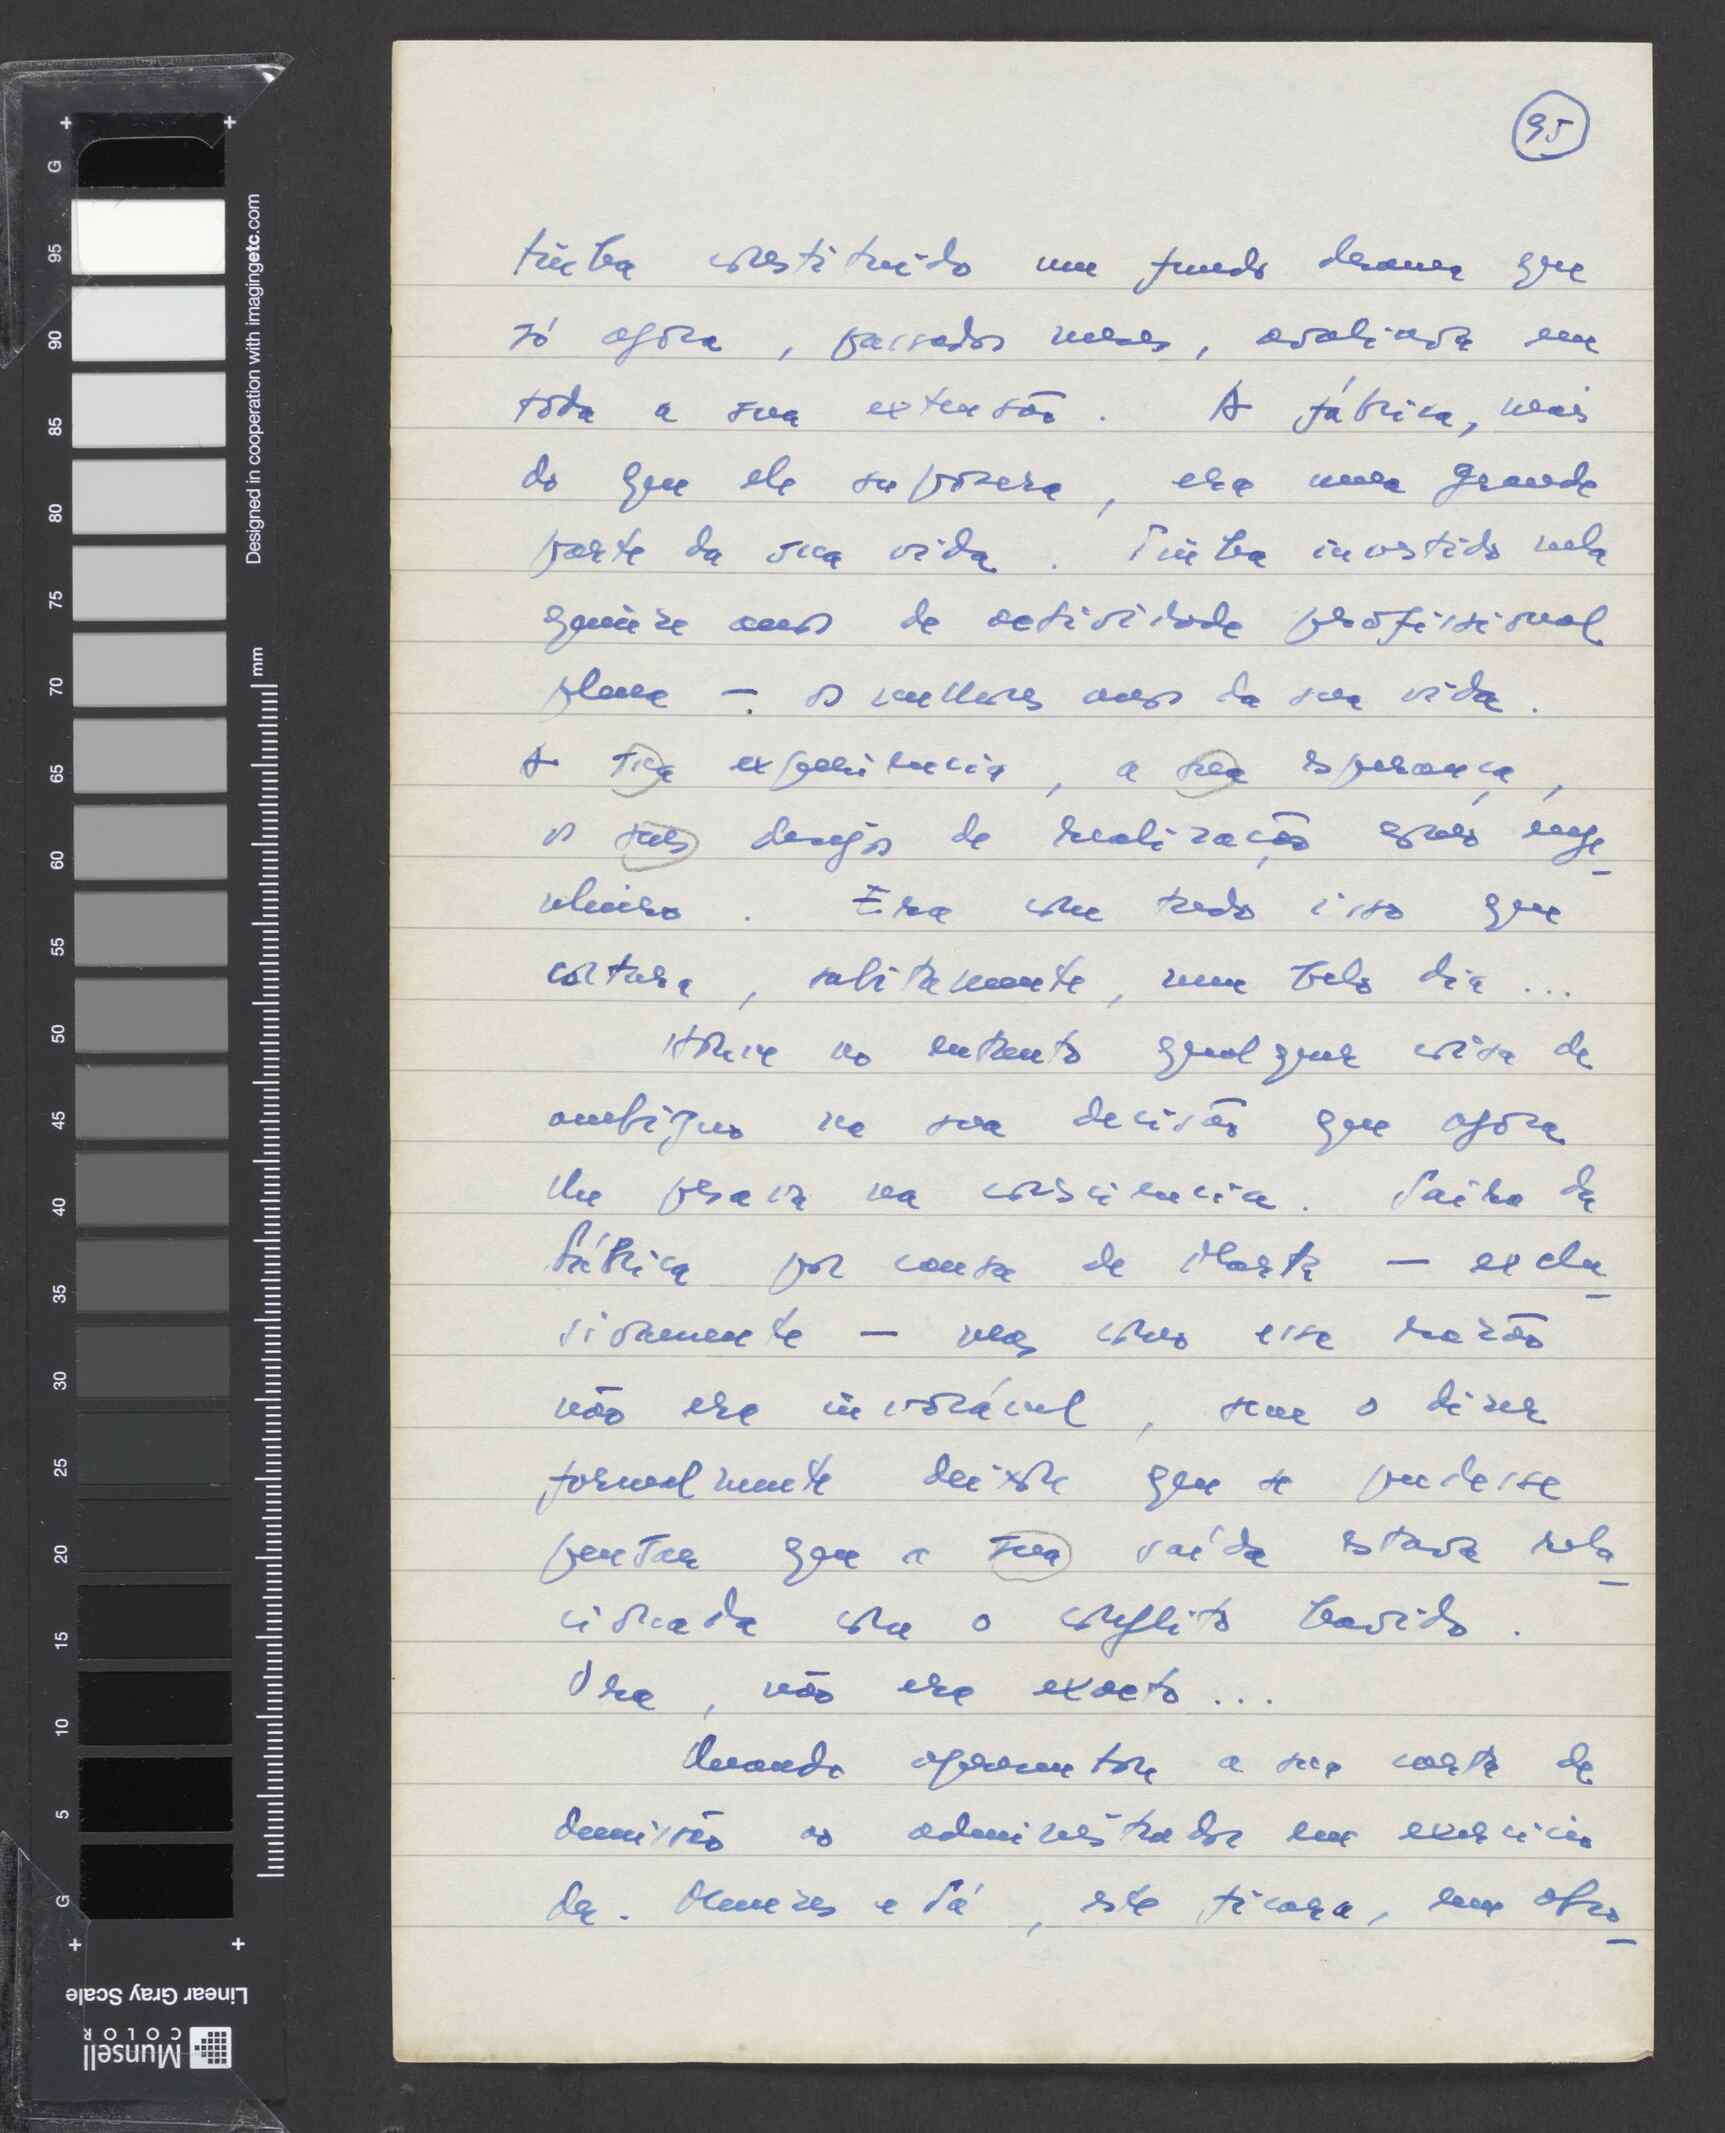 95
tinha constituido um fundo drama que
só agora, passados meses, avaliava em
toda a sua extensão. A fábrica, mais
do que ele supozera, era uma grande
parte da sua vida. Tinha investido nela
quinze anos de actividade profissional
plena — os melhores anos da sua vida.
A sua experiencia, a sua esperança,
os seus desejos de realização como enge
nheiro. Era com tudo isso que
cortara, subitamente, num belo dia ...
Houve no entanto qualquer coisa de
ambiguo na sua decisão que agora
lhe pesava na consciencia. Saira da
fábrica por causa de Marta — exclu
sivamente — mas como essa razão
não era invocável, sem o dizer
formalmente deixou que se pudesse
pensar que a sua saída estava rela
cionada com o conflito havido.
Ora, não era exacto ...
Quando apresentou a sua carta de
demissão ao administrador em exercicio
da. Menezes e Sá, este ficara, sem
G
95
90
85
80
75
70
65
60
55
50
45
40
35
30
25
20
15
10
5
G
mm
Designed in cooperation with imagingetc.com
Linear Gray Scale
Munsell
COLOR